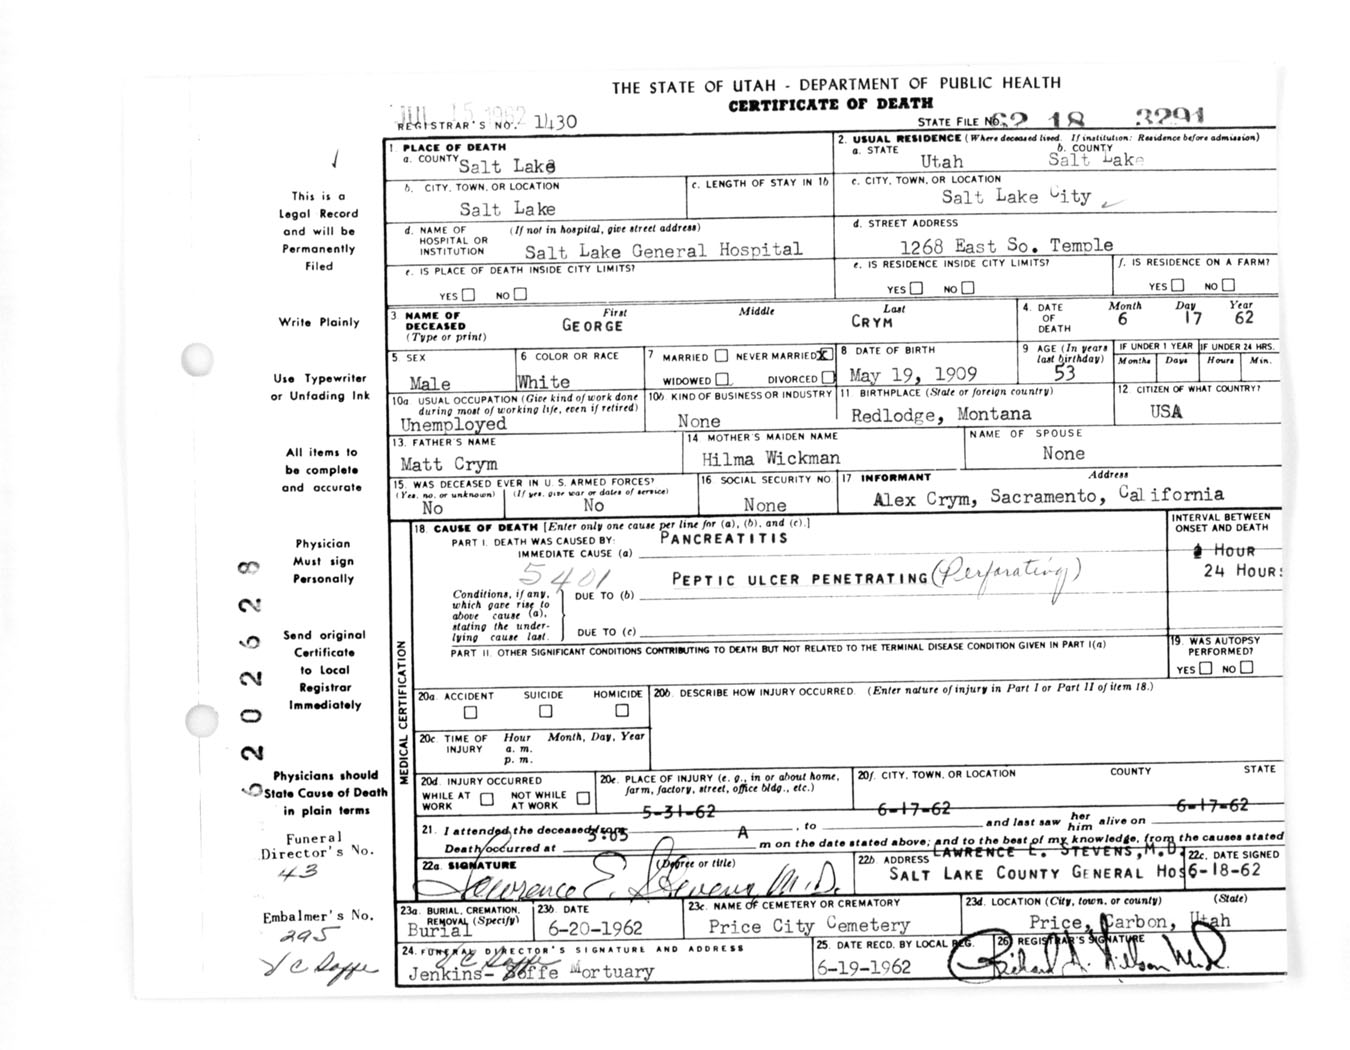 THE STATE OF UTAH - DEPARTMENT OF PUBLIC HEALTH
CERTIFICATE OF DEATH
JUL 15 1962
REGISTRAR'S NO. 1430
STATE FILE NO. 62 18 3291
This is a
Legal Record
and will be
Permanently
Filed
Write Plainly
Use Typewriter
or Unfading Ink
All items to
be complete
and accurate
Physician
Must sign
Personally
Send original
Certificate
to Local
Registrar
Immediately
Physicians should
State Cause of Death
in plain terms
Funeral
Director's No.
43
Embalmer's No.
295
1. PLACE OF DEATH
a. COUNTY Salt Lake
2. USUAL RESIDENCE (Where deceased lived. If institution: Residence before admission)
a. STATE Utah b. COUNTY Salt Lake
b. CITY, TOWN, OR LOCATION Salt Lake
c. LENGTH OF STAY IN 1b
c. CITY, TOWN, OR LOCATION Salt Lake City
d. NAME OF HOSPITAL OR INSTITUTION (If not in hospital, give street address) Salt Lake General Hospital
d. STREET ADDRESS 1268 East So. Temple
e. IS PLACE OF DEATH INSIDE CITY LIMITS? YES NO
e. IS RESIDENCE INSIDE CITY LIMITS? YES NO
f. IS RESIDENCE ON A FARM? YES NO
3 NAME OF DECEASED (Type or print) First GEORGE Middle Last CRYM
4. DATE OF DEATH Month 6 Day 17 Year 62
5 SEX Male
6 COLOR OR RACE White
7 MARRIED NEVER MARRIED X WIDOWED DIVORCED
8 DATE OF BIRTH May 19, 1909
9 AGE (In years last birthday) 53
IF UNDER 1 YEAR Months Days
IF UNDER 24 HRS. Hours Min.
10a USUAL OCCUPATION (Give kind of work done during most of working life, even if retired) Unemployed
10b KIND OF BUSINESS OR INDUSTRY None
11 BIRTHPLACE (State or foreign country) Redlodge, Montana
12 CITIZEN OF WHAT COUNTRY? USA
13. FATHER'S NAME Matt Crym
14 MOTHER'S MAIDEN NAME Hilma Wickman
NAME OF SPOUSE None
15. WAS DECEASED EVER IN U. S. ARMED FORCES? (Yes, no, or unknown) No (If yes, give war or dates of service) No
16 SOCIAL SECURITY NO. None
17 INFORMANT Address Alex Crym, Sacramento, California
MEDICAL CERTIFICATION
18. CAUSE OF DEATH [Enter only one cause per line for (a), (b), and (c).]
INTERVAL BETWEEN ONSET AND DEATH
PART I. DEATH WAS CAUSED BY: IMMEDIATE CAUSE (a) PANCREATITIS
HOUR
5401
Conditions, if any, which gave rise to above cause (a), stating the underlying cause last.
DUE TO (b) PEPTIC ULCER PENETRATING (Perforating)
24 HOURS
DUE TO (c)
PART II. OTHER SIGNIFICANT CONDITIONS CONTRIBUTING TO DEATH BUT NOT RELATED TO THE TERMINAL DISEASE CONDITION GIVEN IN PART I(a)
19. WAS AUTOPSY PERFORMED? YES NO
20a. ACCIDENT SUICIDE HOMICIDE
20b. DESCRIBE HOW INJURY OCCURRED. (Enter nature of injury in Part I or Part II of item 18.)
20c. TIME OF INJURY Hour a. m. p. m. Month, Day, Year
20d. INJURY OCCURRED WHILE AT WORK NOT WHILE AT WORK
20e. PLACE OF INJURY (e. g., in or about home, farm, factory, street, office bldg., etc.)
20f. CITY, TOWN, OR LOCATION COUNTY STATE
21. I attended the deceased from 5-31-62, to 6-17-62 and last saw her him alive on 6-17-62
Death occurred at 3:05 A m on the date stated above; and to the best of my knowledge, from the causes stated
22a. SIGNATURE (Degree or title) Lawrence E. Stevens M.D.
22b. ADDRESS LAWRENCE E. STEVENS, M.D.
SALT LAKE COUNTY GENERAL HOS
22c. DATE SIGNED 6-18-62
23a. BURIAL, CREMATION, REMOVAL (Specify) Burial
23b. DATE 6-20-1962
23c. NAME OF CEMETERY OR CREMATORY Price City Cemetery
23d. LOCATION (City, town, or county) (State) Price, Carbon, Utah
24. FUNERAL DIRECTOR'S SIGNATURE AND ADDRESS
Jenkins-Soffe Mortuary
25. DATE RECD. BY LOCAL REG. 6-19-1962
26 REGISTRAR'S SIGNATURE